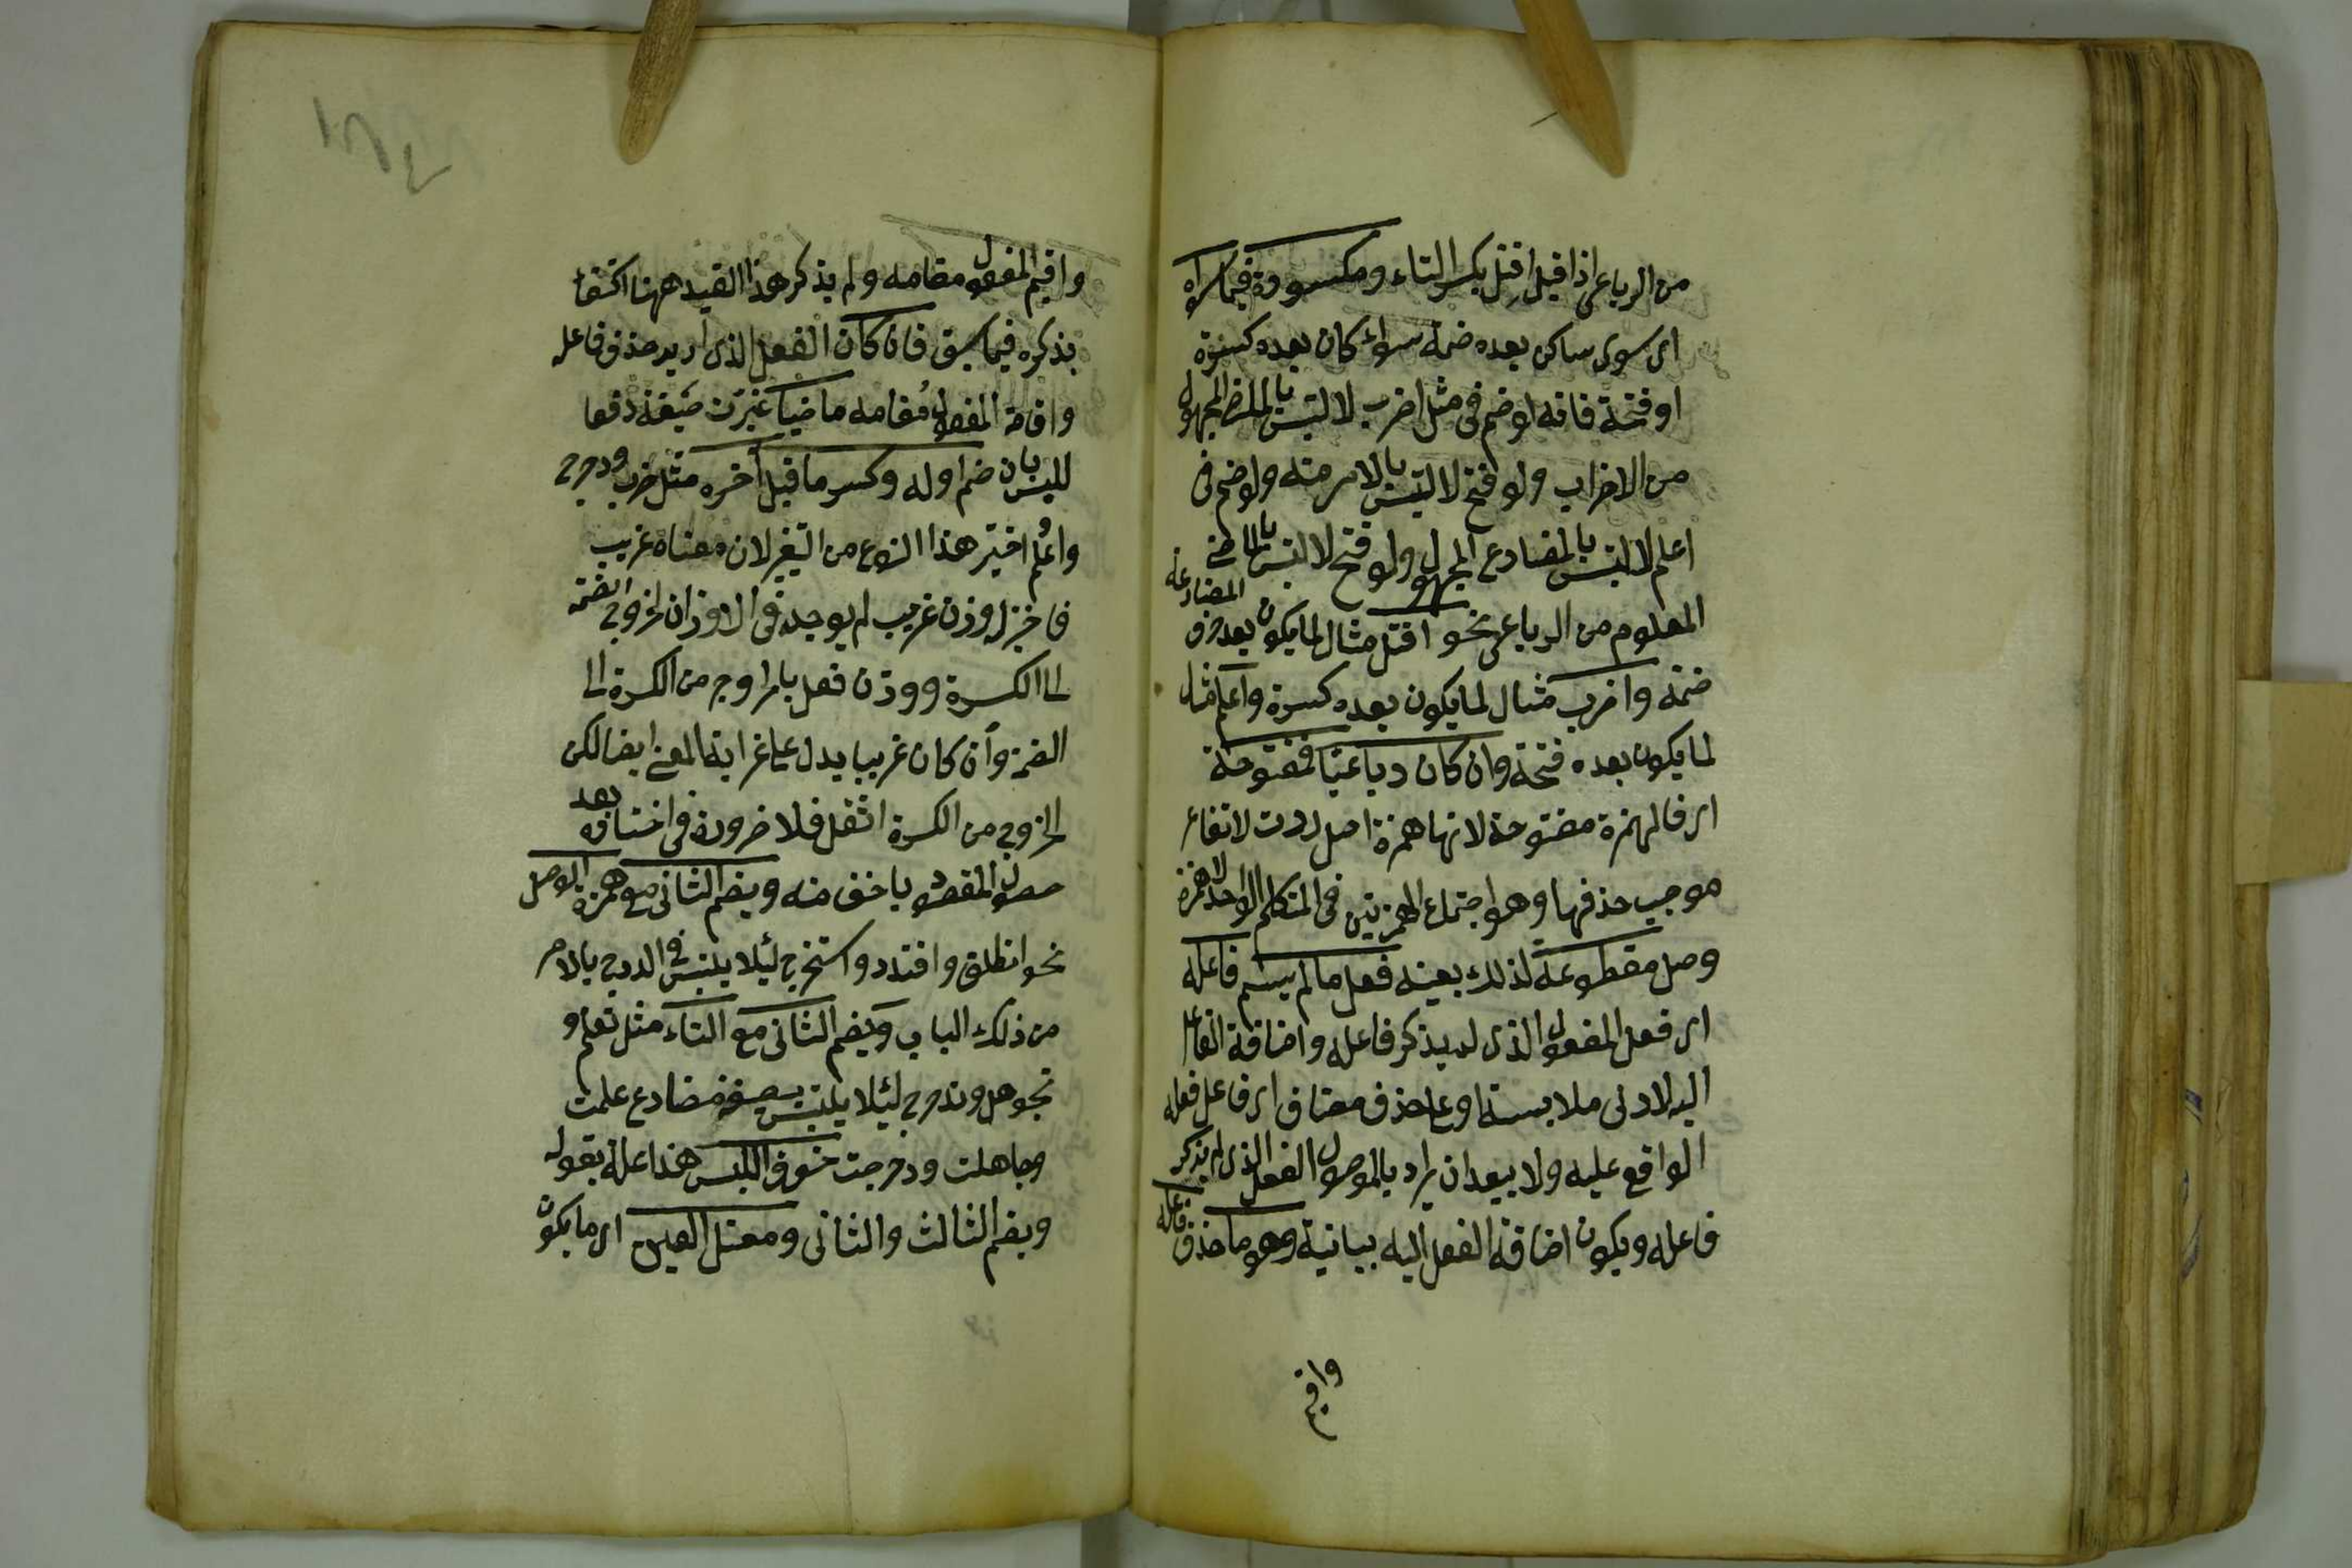 من الرباعى اذا قيل اقتل بكسر التاء ومكسورة فيما سواه
اى سوى ساكن بعده ضمة سواء كان بعده كسرة
او فتحة فانه لو ضم فى مثل اضرب لالتبس بالمضارع المجهول
من الاضراب ولو فتح لالتبس بالامر منه ولو ضم فى
اعلم لالتبس بالمضارع المجهول ولو فتح لالتبس بالماضى
المعلوم من الرباعى نحو اقتل مثال لما يكون بعد حرف المضارعة
ضمة واضرب مثال لما يكون بعده كسرة واعلم مثال
لما يكون بعده فتحة وان كان رباعيا فمفتوحة
اى فالهمزة مفتوحة لانها همزة اصل ردت لارتفاع
موجب حذفها وهو اجتماع الهمزتين فى المتكلم الواحد لا همزة
وصل مقطوعة لذلك بعينه فعل ما لم يسم فاعله
اى فعل المفعول الذى لم يذكر فاعله واضافة الفاعل
اليه لادنى ملابسة او على حذف مضاف اى فاعل فعله
الواقع عليه ولا يبعد ان يراد بالموصول الفعل الذى لم يذكر
فاعله ويكون اضافة الفعل اليه بيانية وهو ما حذف فاعله
واقيم
واقيم المفعول مقامه ولم يذكر هذا القيد ههنا اكتفاء
بذكره فيما سبق فان كان الفعل الذى اريد حذف فاعله
واقامة المفعول مقامه ماضيا غيرت صيغته دفعا
للبس بان ضم اوله وكسر ما قبل آخره مثل ضرب ودحرج
واعلم اختير هذا النوع من التغير لان معناه غريب
فاختير له وزن غريب لم يوجد فى الاوزان لخروج الضمة
الى الكسرة ووزن فعل بالخروج من الكسرة الى
الضمة وان كان غريبا يدل على غرابة المعنى ايضا لكن
الخروج من الكسرة اثقل فلا ضرورة فى اختياره بعد
حصول المقصود باخف منه ويضم الثانى مع همزة الوصل
نحو انطلق واقتدر واستخرج لئلا يلتبس فى الدرج بالامر
من ذلك الباب ويضم الثانى مع التاء مثل تعلم و
تجوهل وتدحرج لئلا يلتبس بصيغة مضارع علمت
وجاهلت ودحرجت خوف اللبس هذا علة لقوله
ويضم الثالث والثانى ومعتل العين اى ما يكون